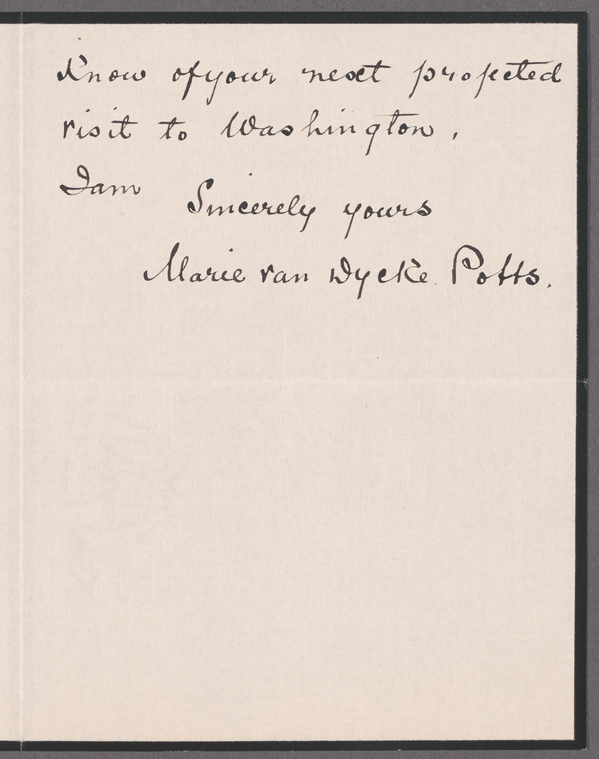 know of your next projected
visit to Washington.
I am
Sincerely yours
Marie van Dycke Potts.